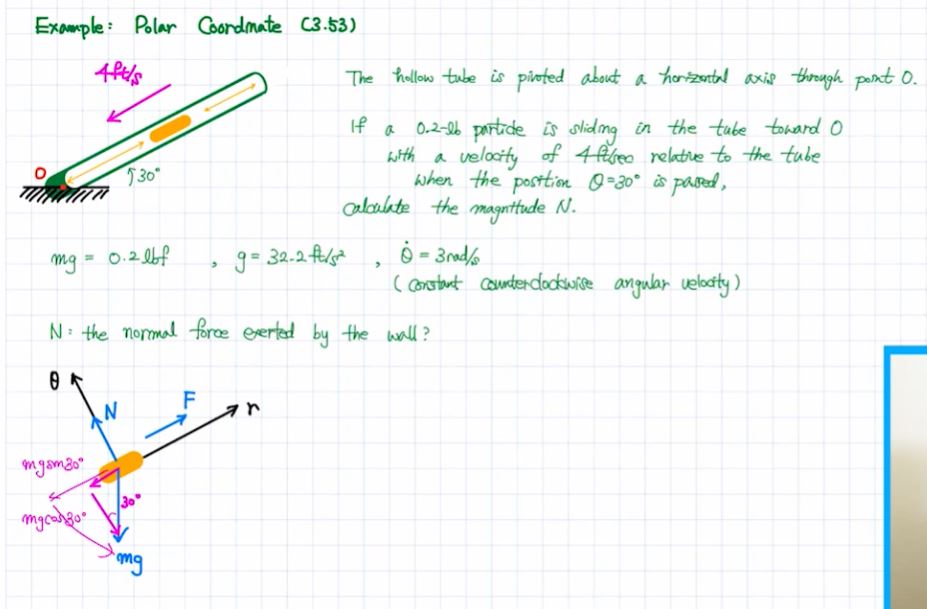 Example: Polar Coordinate (3.53)
4ft/s
The hollow tube is pivoted about a horizontal axis through point O.
If a 0.2-lb particle is sliding in the tube toward O
with a velocity of 4ft/sec relative to the tube
when the position θ=30° is passed,
calculate the magnitude N.
O
30°
mg = 0.2 lbf , g = 32.2 ft/s² , θ̇ = 3rad/s
(constant counterclockwise angular velocity)
N: the normal force exerted by the wall?
θ
N
F
r
mgsin30°
30°
mgcos30°
mg